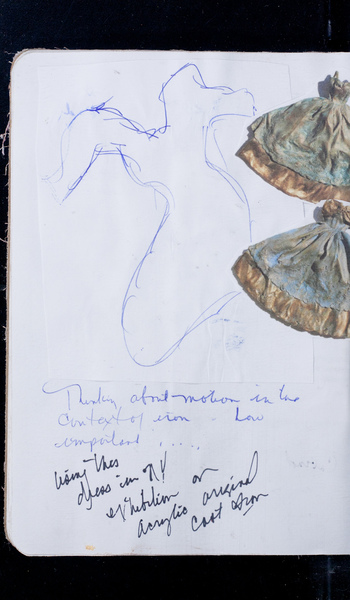 Thinking about motion in the
context of iron - how
important . . . . .
using this
dress in NY
exhibition or
acrylic original
cast iron